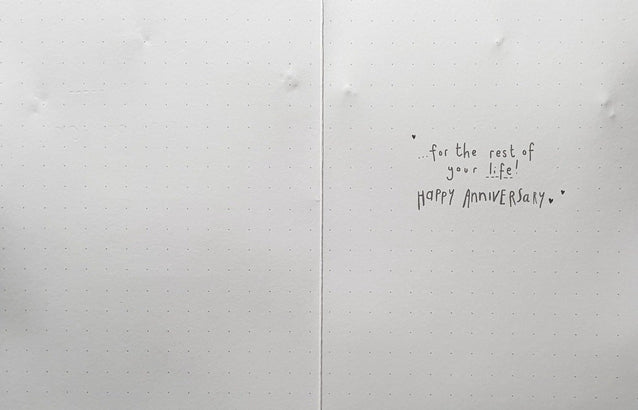 ...for the rest of
your life!
HAPPY ANNIVERSARY